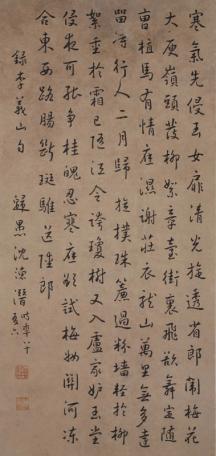 寒氣先侵玉女扉清光旋透省郎闈梅花
大庾嶺頭發柳絮章臺街裏飛欲舞定隨
曹植馬有情應濕謝莊衣龍山萬里無多遠
留待行人二月歸旋撲珠簾過粉墻輕於柳
絮重於霜已隨江令誇瓊樹又入盧家妒玉堂
侵夜可能爭桂魄忍寒應欲試梅妝關河凍
合東西路腸斷斑騅送陸郎
錄李義山句